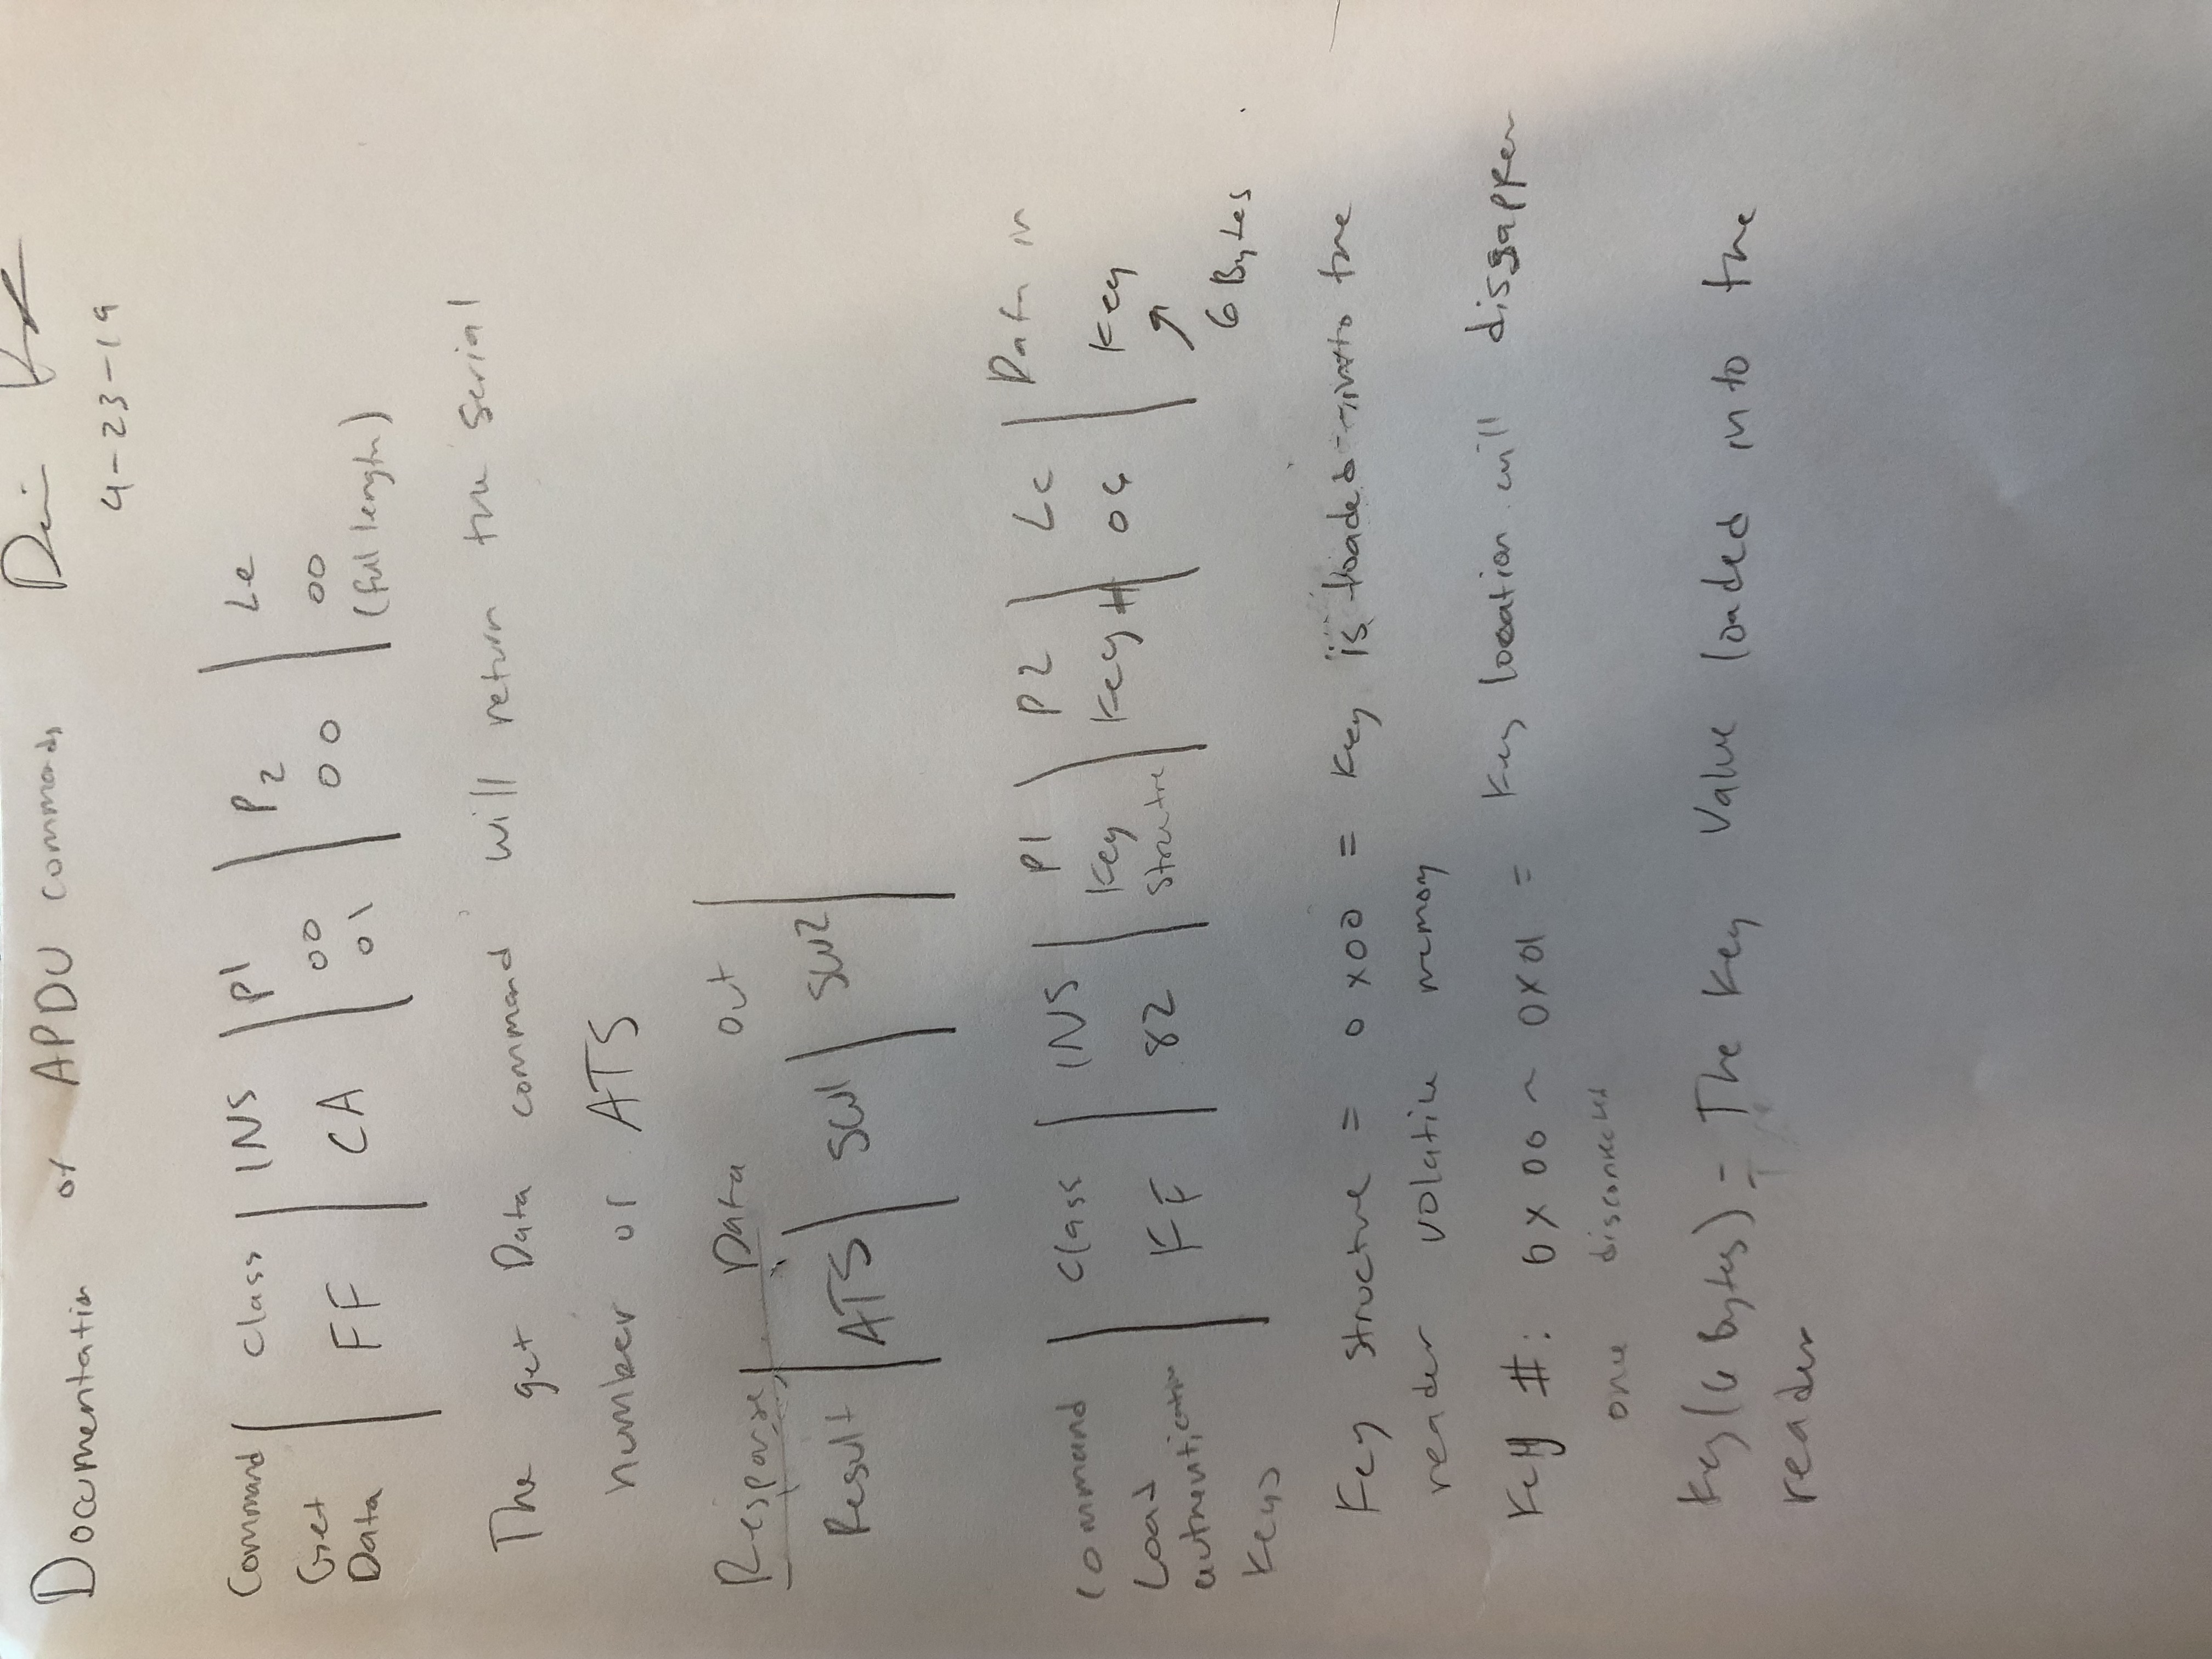 Documentation of APDU commands
4-23-19
Command | Class | INS | P1 | P2 | Le
Get Data | FF | CA | 00 01 | 00 | 00 (full length)
The get Data command will return the serial
number or ATS
Response | Data out |
Result | ATS | SW1 | SW2 |
Command | Class | INS | P1 | P2 | Lc | Data in
Load authentication Keys | FF | 82 | Key Structre | Key # | 06 | Key
6 Bytes
Key structure = 0x00 = Key is loaded into the
reader volatile memory
Key #: 0x00 ~ 0x01 = Key location will dissapper
once disconnected
Key (6 Bytes) = The Key Value loaded into the
reader